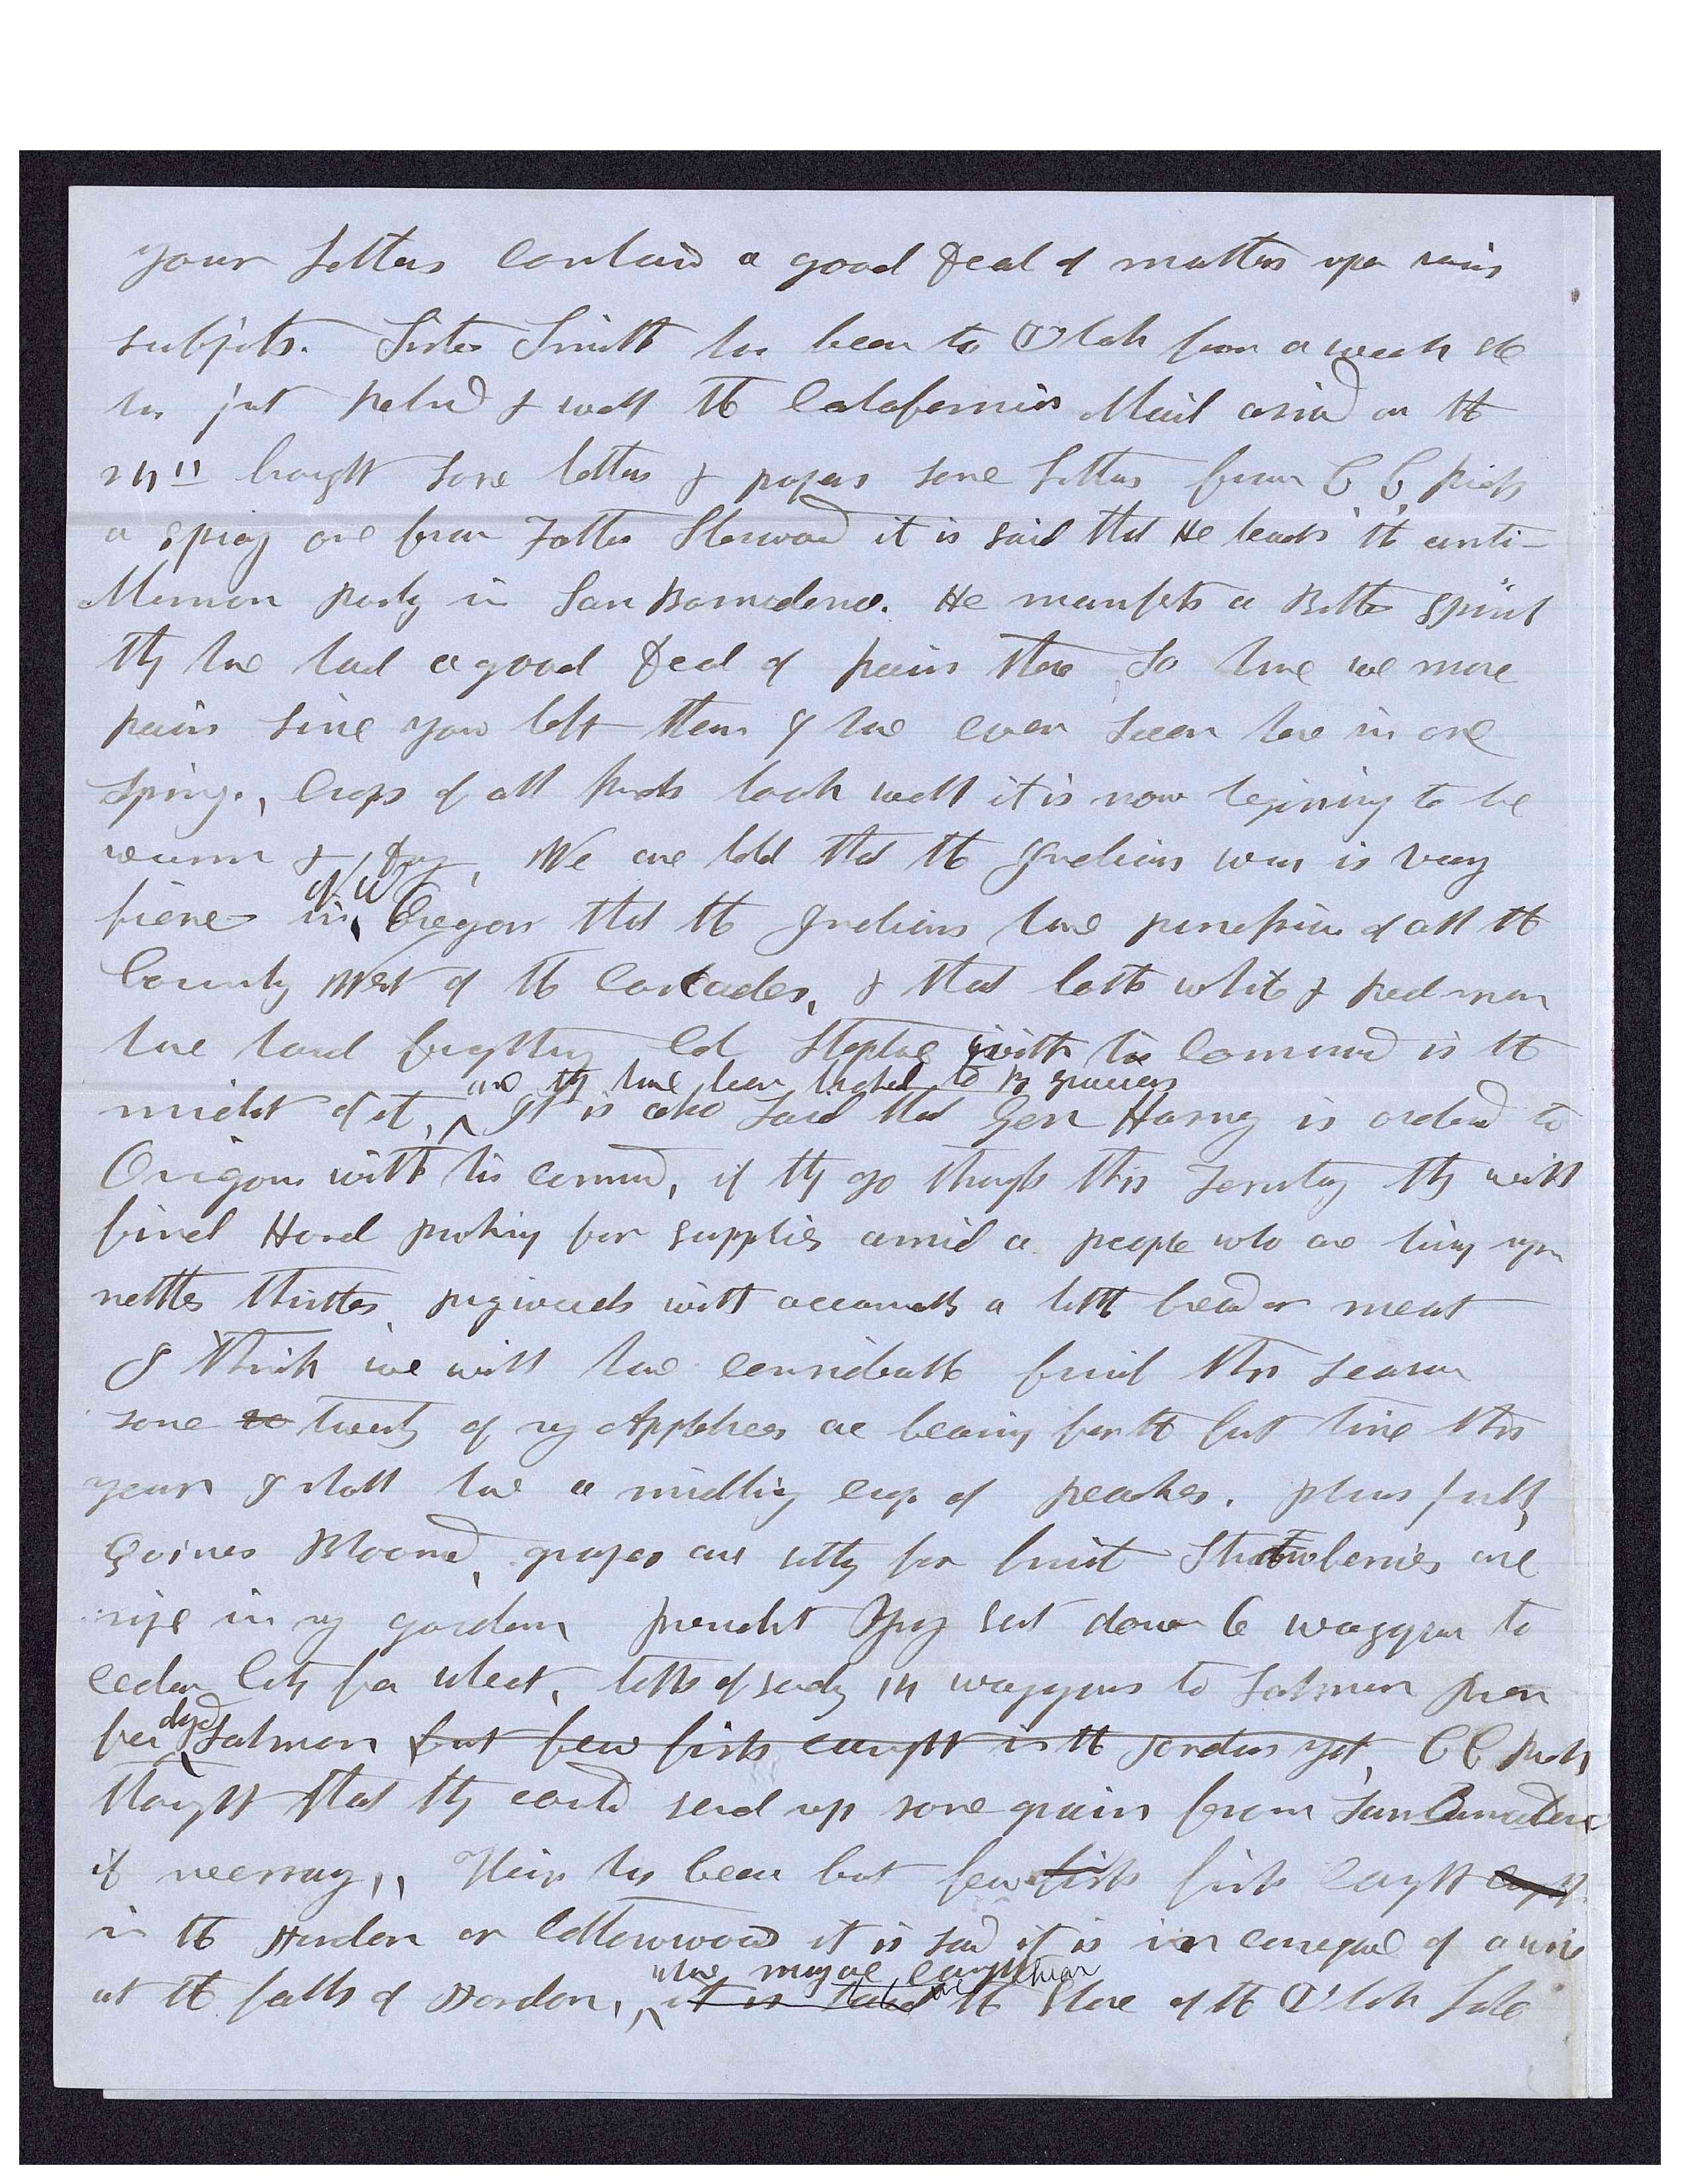 your Letters contain a good deal of matters upon various
subjects. Sister Smith has been to Utah for a week she
has just returned & well the Calafornia Mail arived on the
brought some letters & papers some Letters from C C Rich
a spicy one from Father Sherwood it is said that He leads the anti-
Mormon party in San Bernardeno. He manifests a Bitter spirit
they have had a good deal of rain there So have we more
rain since you left than I have ever seen here in one
Spring., Crops of all kinds look well it is now begining to be
warm & dry, We are told that the Indian war is very
fierce in Oregon that the Indians have possession of all the
County West of the Cascades, & that both white & red man
have hard fighting Col Steptoe with his Command is in the
midst of it, and they have been
It is also said that Gen Harney is ordered to
Origon with his command, if they go through this Territory they will
find Hard picking for supplies amid a people who are living upon
nettles thistles pigweeds with occasionally a little bread or meat
I think we will have considerable fruit this season
some 20 twenty of my Appletrees are bearing for the first time this
year I shall have a middling crop of peaches. plums full,
Quinces Bloomed, grapes are setting for fruit Strawberries are
ripe in my garden President Young sent down 6 waggons to
Cedar City for wheat, waggons to Salmon River
for dried Salmon but few fish caught in the Jordan yet, C C Rich
thought that they could send up some grain from San Bernardeno
if necessary,, Their has been but few fish fish caught caught
in the Jordon or Cottonwood it is said it is in consequence of a
at the falls of Jordon, it is said the Shore of the Utah Lake